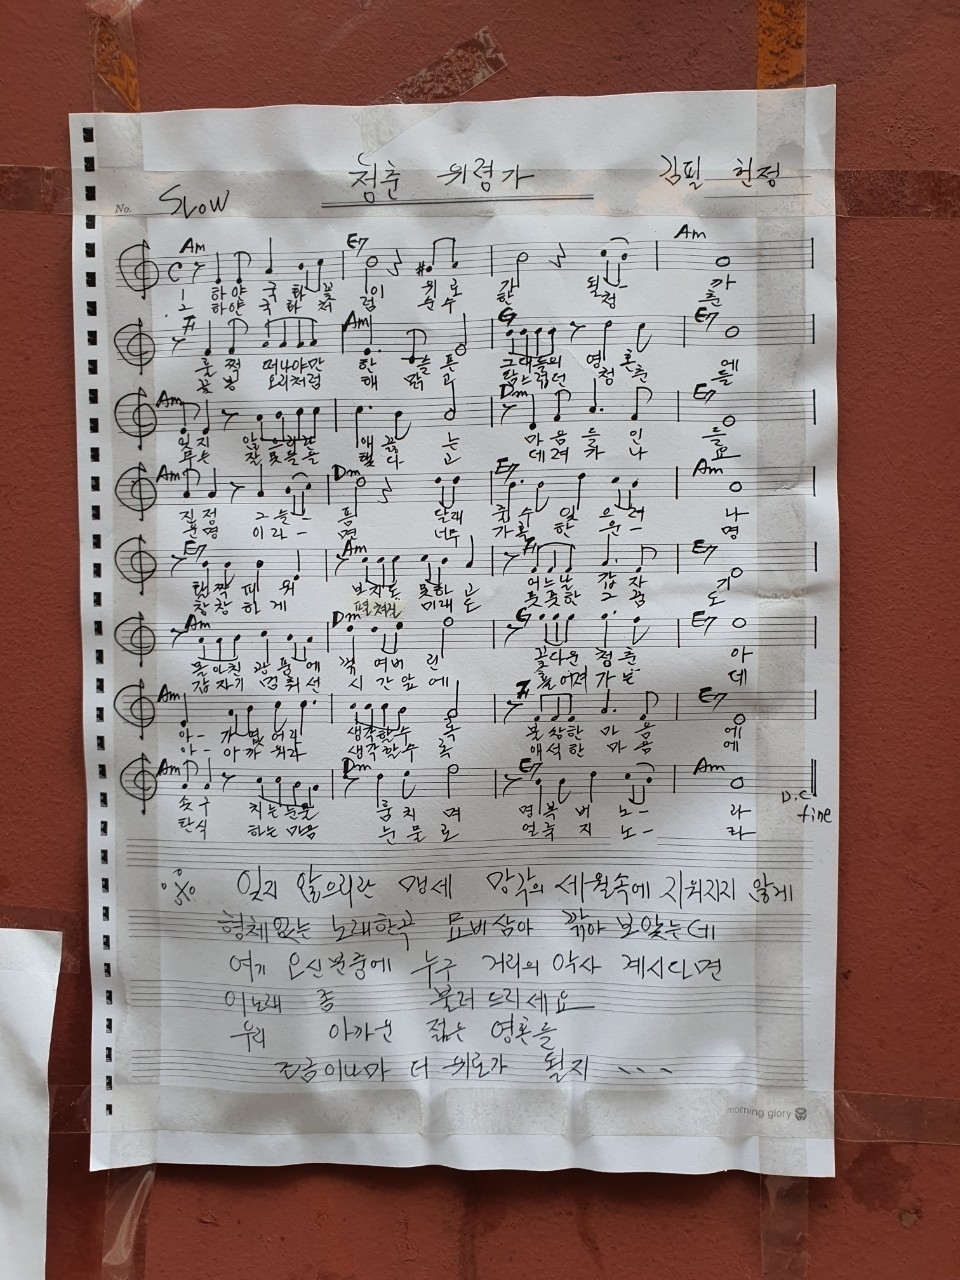 청춘 위령가
김필 헌정
No.
SLOW
Am E7 Am
1 하얀 국화 꽃 이 위로 가 될- 까
2 하얀 국화 처 럼 순수 한 청- 춘
F Am G E7
훌쩍 떠나야만 한 슬픈 그대들의 영혼 에
꽃봉 오리처럼 해 맑고 탐스럽던 청춘 들
Am Dm E7
잊지 않으리란 애 끓는 마음들인 들
데려 가나 요
Am Dm E7 Am
진정 그슬- 픔 달래 줄수 있으려 나
운명 이라- 면 너무 가혹 한 운- 명
E7 Am F E7
활짝 피워 보지도 못하고 어느날 갑자 기
창창하게 펼쳐질 미래도 풋풋한 그 꿈 도
Am Dm G E7
몰아친 광풍에 꺾여버린 꽃다운 청춘 아
갑자기 멈춰선 시간앞에 흩어져 가는 데
Am F E7
아- 가엾어라 생각할수록 불쌍한 마음 에
아- 아까워라 생각할수록 애석한 마음 에
Am Dm E7 Am
솟구 치는눈물 훔치며 명복 비 노- 라
탄식 하는마음 눈물로 얼룩 지 노- 라
D.C
fine
※ 잊지 않으리란 맹세 망각의 세월속에 지워지지 않게
형체없는 노래한곡 묘비삼아 깎아 보았는데
여기 오신분중에 누구 거리의 악사 계시다면
이노래 좀 불러 드리세요
우리 아까운 젊은 영혼들
조금이나마 더 위로가 될지 、、、
morning glory